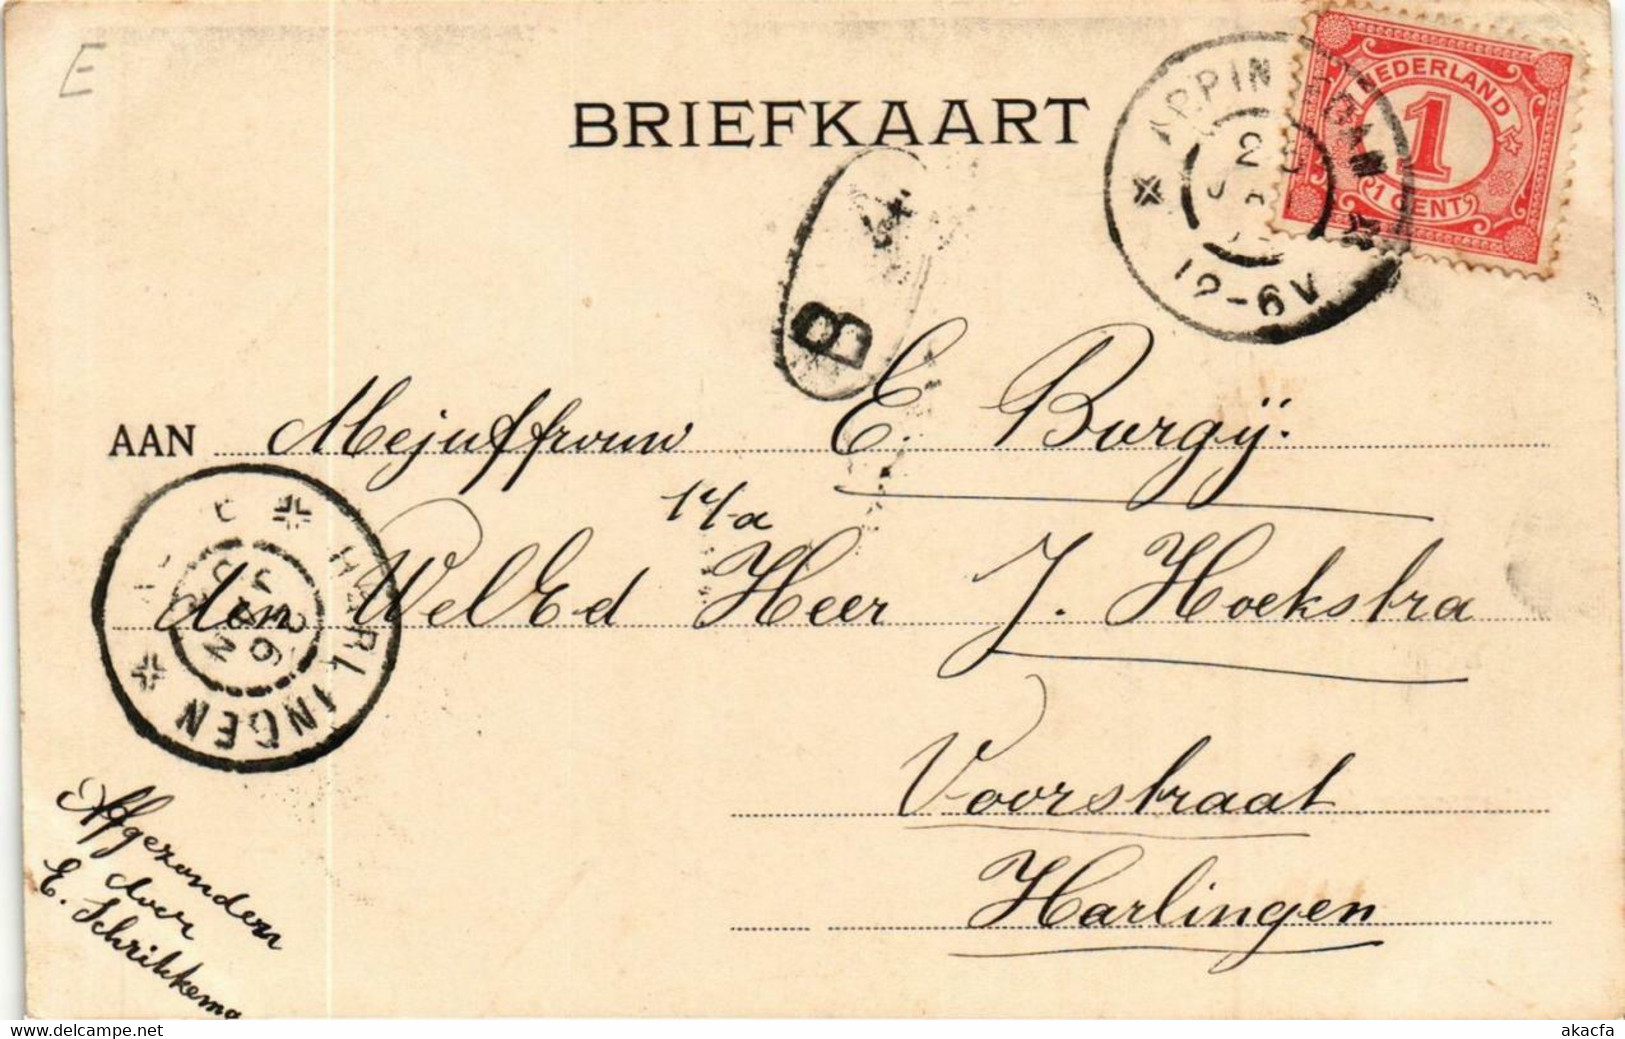 E
BRIEFKAART
NEDERLAND
1
1 CENT
12-6V
B 4
AAN Mejuffrouw E. Burgÿ.
14a
den WelEd Heer J. Hoekstra
HARLINGEN
Voorstraat
Harlingen
Afgezonden
door
E. Schrikkema
www.delcampe.net
akacfa